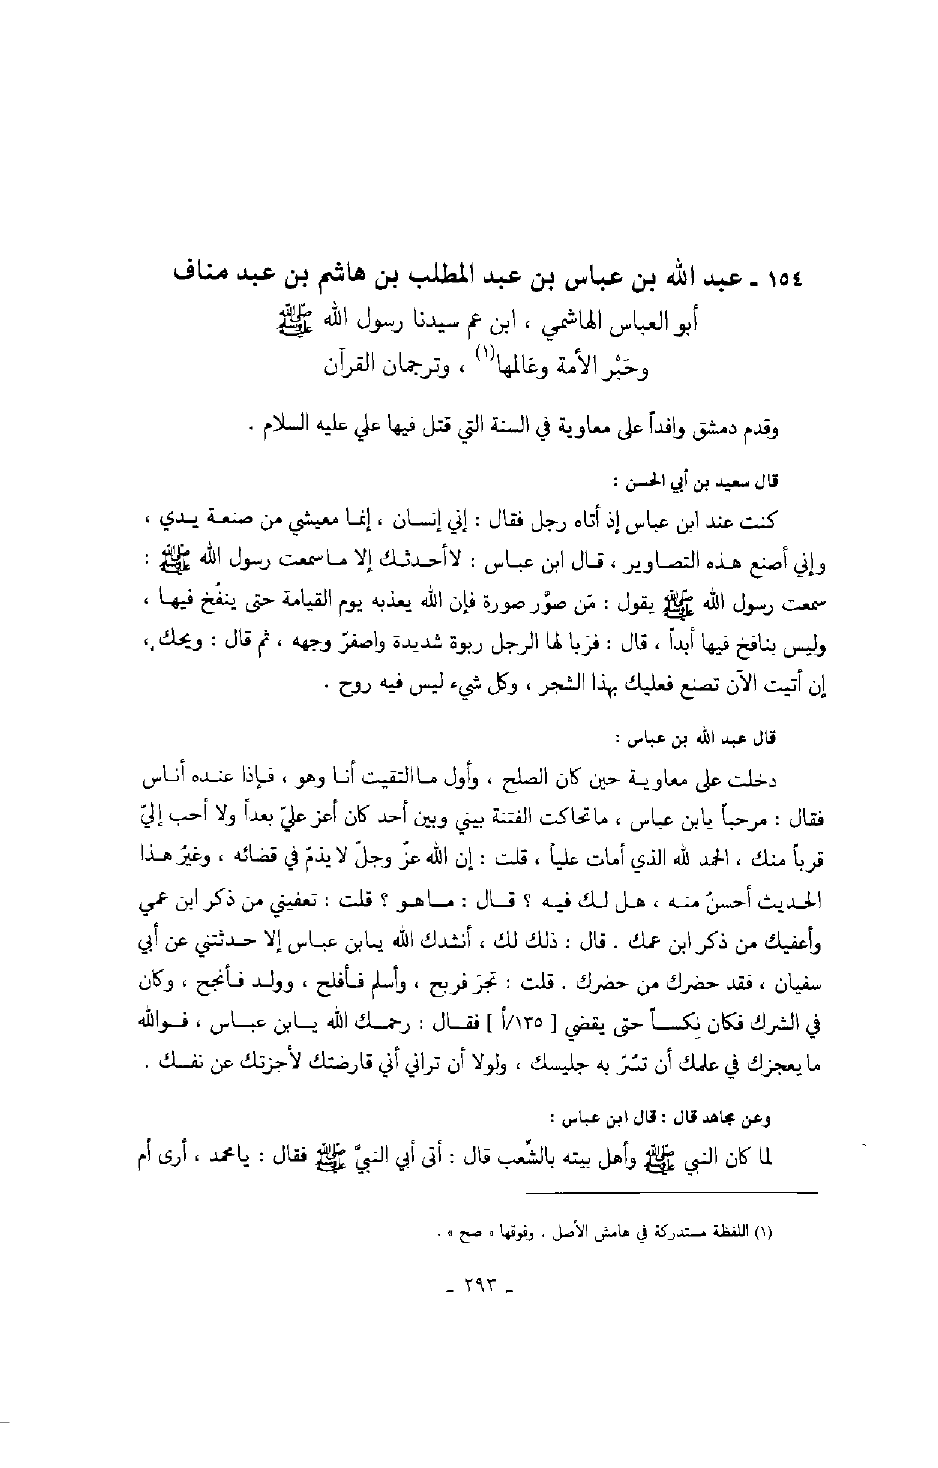 ١٥٤ ـ عبد الله بن عباس بن عبد المطلب بن هاشم بن عبد مناف
أبو العباس الهاشمي ، ابن عم سيدنا رسول الله ﷺ
وحَبْر الأمة وعَالمها(١) ، وترجمان القرآن
وقدم دمشق وافداً على معاوية في السنة التي قتل فيها علي عليه السلام .
قال سعيد بن أبي الحسن :
كنت عند ابن عباس إذ أتاه رجل فقال : إني إنسان ، إنما معيشي من صنعة يدي ،
وإني أصنع هذه التصاوير ، قال ابن عباس : لا أحدثك إلا ما سمعت رسول الله ﷺ :
سمعت رسول الله ﷺ يقول : مَن صوَّر صورة فإن الله يعذبه يوم القيامة حتى ينفُخ فيها ،
وليس بنافخ فيها أبداً ، قال : فربا لها الرجل ربوة شديدة واصفرّ وجهه ، ثم قال : ويحك ،
إن أتيت الآن تصنع فعليك بهذا الشجر ، وكل شيء ليس فيه روح .
قال عبد الله بن عباس :
دخلت على معاوية حين كان الصلح ، وأول ما التقيت أنا وهو ، فإذا عنده أناس
فقال : مرحباً يابن عباس ، ماتحاكت الفتنة بيني وبين أحد كان أعز عليّ بعداً ولا أحب إليّ
قرباً منك ، الحمد لله الذي أمات علياً ، قلت : إن الله عزّ وجلّ لا يذمّ في قضائه ، وغيرُ هذا
الحديث أحسنُ منه ، هل لك فيه ؟ قال : ماهو ؟ قلت : تعفيني من ذكر ابن عمي
وأعفيك من ذكر ابن عمك . قال : ذلك لك ، أنشدك الله يابن عباس إلا حدثتني عن أبي
سفيان ، فقد حضرك من حضرك . قلت : تجَر فربح ، وأسلم فأفلح ، وولد فأنجح ، وكان
في الشرك فكان نِكساً حتى يقضي [ ١٣٥/أ ] فقال : رحمك الله يابن عباس ، فوالله
ما يعجزك في علمك أن تسُرّ به جليسك ، ولولا أن تراني أني قارضتك لأجزتك عن نفسك .
وعن مجاهد قال : قال ابن عباس :
لما كان النبي ﷺ وأهل بيته بالشِّعب قال : أتى أبي النبيَّ ﷺ فقال : يامحمد ، أرى أم
(١) اللفظة مستدركة في هامش الأصل . وفوقها « صح » .
ـ ٢٩٣ ـ